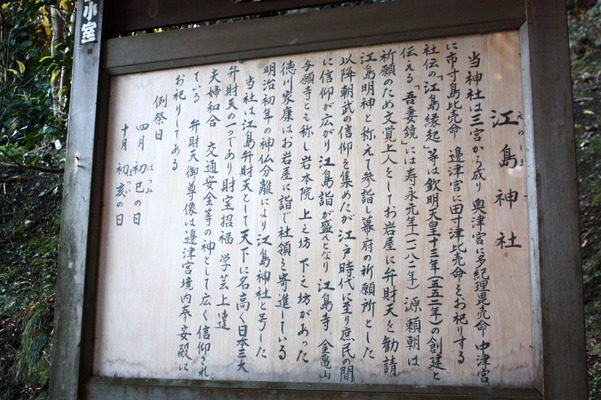 小室
えのしま
江島神社
当神社は三宮から成り 奥津宮に多紀理毘売命 中津宮
に市寸島比売命 邊津宮に田寸津比売命をお祀りする
社伝の「江島縁起」等は欽明天皇十三年(五五二年)の創建と
伝える「吾妻鏡」には寿永元年(一一八二年) 源頼朝は
祈願のため文覚上人としてお岩屋に弁財天を勧請
江島明神と称えて参詣し幕府の祈願所とした
以降朝武の信仰を集めたが江戸時代に至り庶民の間
に信仰が広がり江島詣が盛んとなり 江島寺 金亀山
与願寺と称し岩本院 上之坊 下之坊があった
徳川家康はお岩屋に詣じ社領を寄進している
明治初年の神仏分離により江島神社と号した
当社は江島弁財天として天下に名高く日本三大
弁財天の一つであり財宝招福 学芸上達
夫婦和合 交通安全等の神として広く信仰され
ている 弁財天御尊像は邊津宮境内奉安殿に
お祀りしてある
例祭日
四月 初巳の日
はつみ
十月 初亥の日